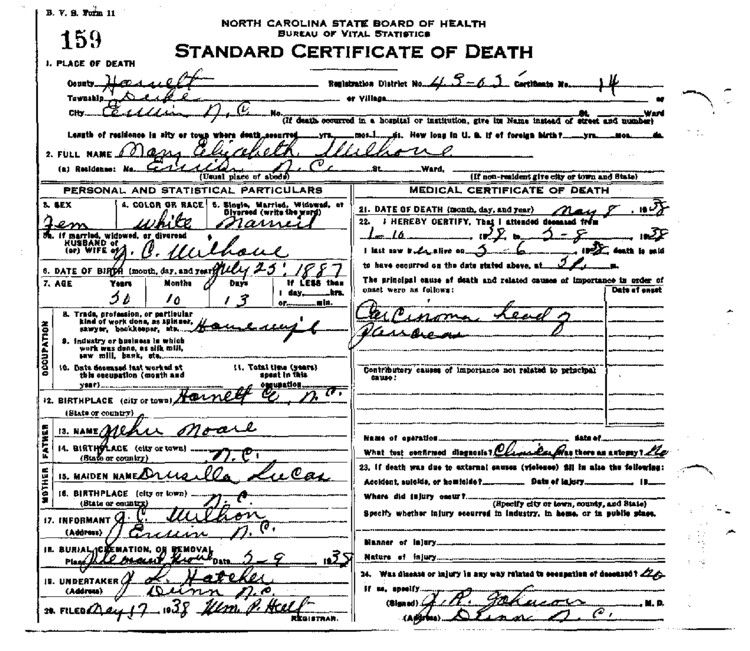 B. V. S. Form 11
NORTH CAROLINA STATE BOARD OF HEALTH
BUREAU OF VITAL STATISTICS
159
STANDARD CERTIFICATE OF DEATH
1. PLACE OF DEATH
County Harnett Registration District No. 43-03 Certificate No. 14
Township Duke or Village or
City Erwin N.C. No. St. Ward
(If death occurred in a hospital or institution, give its Name instead of street and number)
Length of residence in city or town where death occurred yrs. mos. ds. How long in U. S. if of foreign birth? yrs. mos. ds.
2. FULL NAME Mary Elizabeth Milhone
(a) Residence: No. Erwin N.C. St. Ward,
(Usual place of abode) (If non-resident give city or town and State)
PERSONAL AND STATISTICAL PARTICULARS
3. SEX 4. COLOR OR RACE 5. Single, Married, Widowed, or Divorced (write the word)
Fem white Married
5a. If married, widowed, or divorced
HUSBAND of
(or) WIFE of J. C. Milhone
6. DATE OF BIRTH (month, day, and year) July 25, 1887
7. AGE Years Months Days If LESS than 1 day, hrs. or min.
50 10 13
OCCUPATION
8. Trade, profession, or particular kind of work done, as spinner, sawyer, bookkeeper, etc. Housewife
9. Industry or business in which work was done, as silk mill, saw mill, bank, etc.
10. Date deceased last worked at this occupation (month and year)
11. Total time (years) spent in this occupation
12. BIRTHPLACE (city or town) Harnett Co. N.C.
(State or country)
FATHER
13. NAME John Moore
14. BIRTHPLACE (city or town)
(State or country) N.C.
MOTHER
15. MAIDEN NAME Drusilla Lucas
16. BIRTHPLACE (city or town)
(State or country) N.C.
17. INFORMANT J. C. Milhon
(Address) Erwin N.C.
18. BURIAL, CREMATION, OR REMOVAL
Place Pleasant Grove Date 5-9 1938
19. UNDERTAKER J L. Hatcher
(Address) Dunn N.C.
20. FILED May 17 1938 Wm. P. Holt
REGISTRAR.
MEDICAL CERTIFICATE OF DEATH
21. DATE OF DEATH (month, day, and year) May 8, 1938
22. I HEREBY CERTIFY, That I attended deceased from
1-10 1938 to 5-8, 1938
I last saw her alive on 5-6, 1938 death is said
to have occurred on the date stated above, at m.
The principal cause of death and related causes of importance in order of
onset were as follows: Date of onset
Carcinoma head of
Pancreas
Contributory causes of importance not related to principal
cause:
Name of operation date of
What test confirmed diagnosis? Clinical Was there an autopsy? No
23. If death was due to external causes (violence) fill in also the following:
Accident, suicide, or homicide? Date of injury 19
Where did injury occur?
(Specify city or town, county, and State)
Specify whether injury occurred in industry, in home, or in public place.
Manner of injury
Nature of injury
24. Was disease or injury in any way related to occupation of deceased? No
If so, specify
(Signed) J. R. Johnson, M. D.
(Address) Dunn N. C.